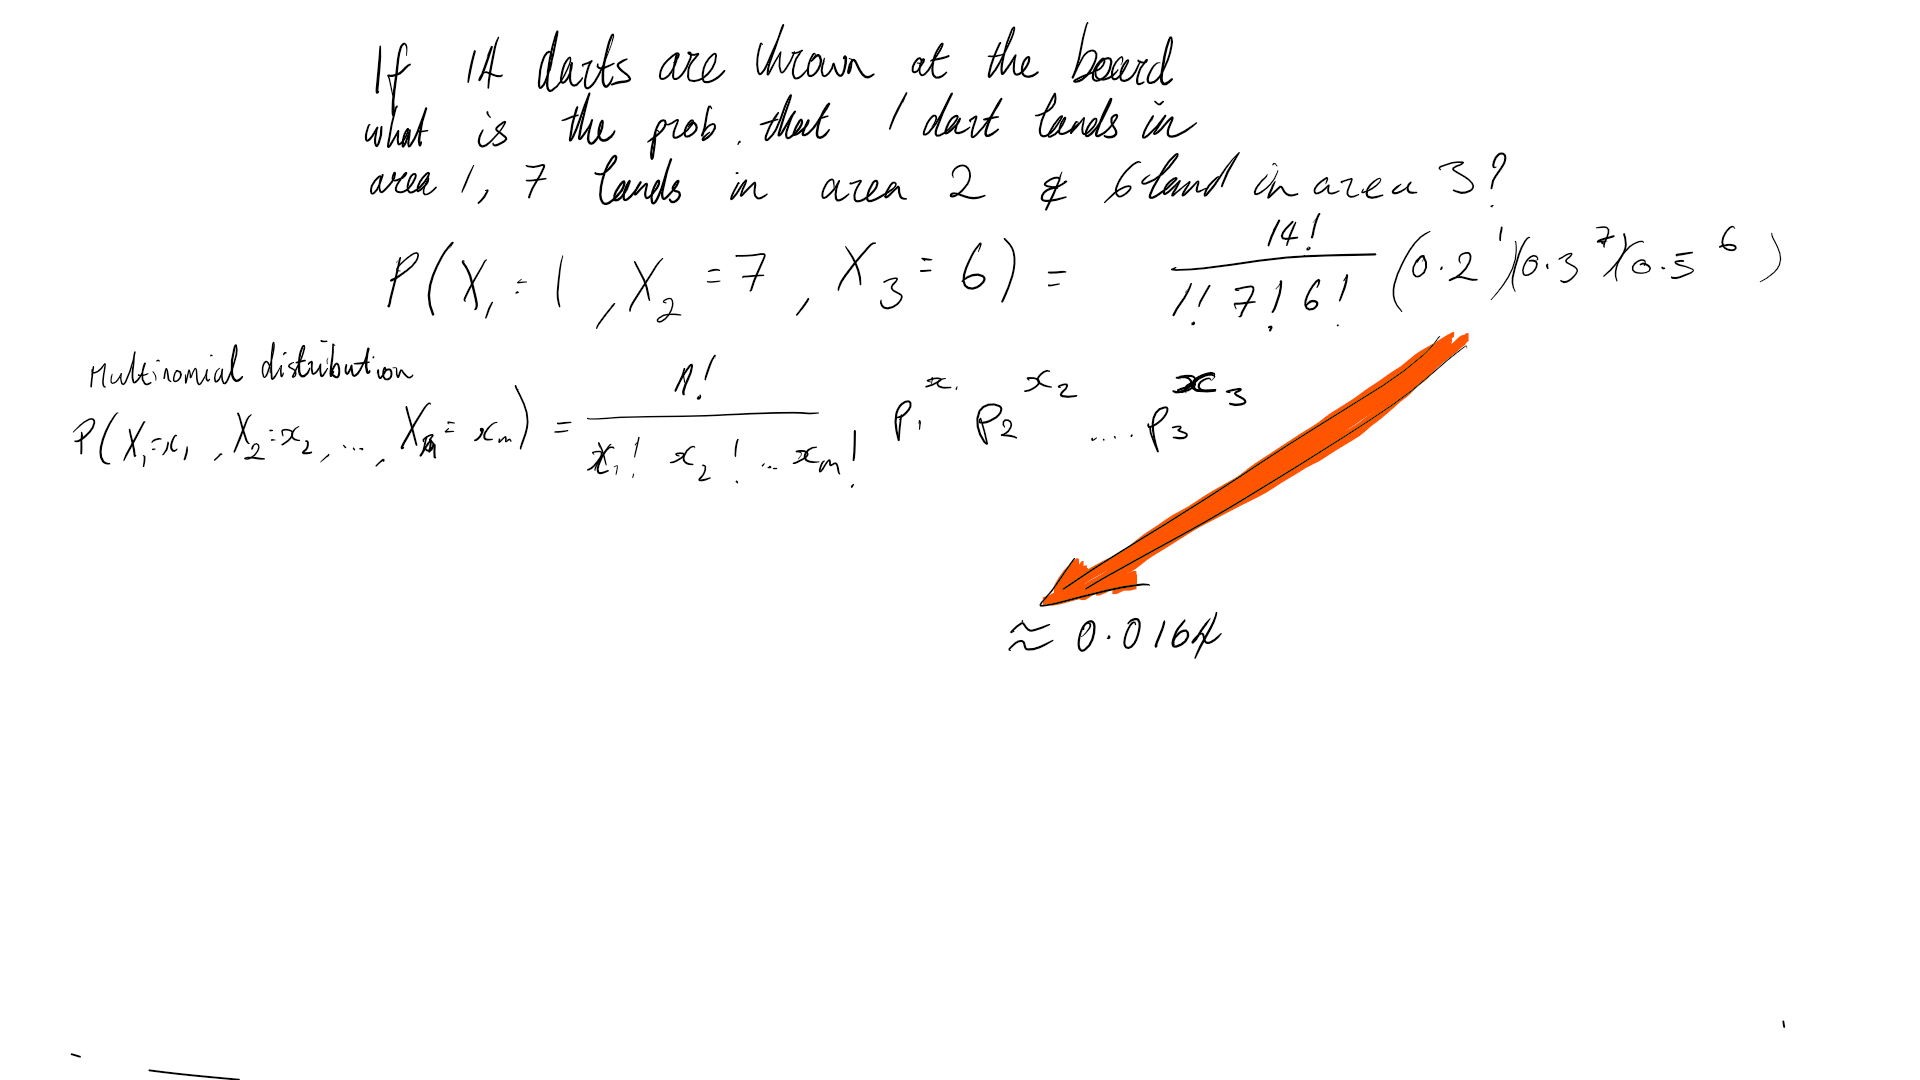 If 14 darts are thrown at the board
what is the prob. that 1 dart lands in
area 1, 7 lands in area 2 & 6 land in area 3?
P(X₁=1, X₂=7, X₃=6) = 14!/(1! 7! 6!) (0.2¹)(0.3⁷)(0.5⁶)
Multinomial distribution
P(X₁=x₁, X₂=x₂, ..., Xₘ=xₘ) = n!/(x₁! x₂! ... xₘ!) p₁^x₁ p₂^x₂ .... p₃^x₃
≈ 0.0164